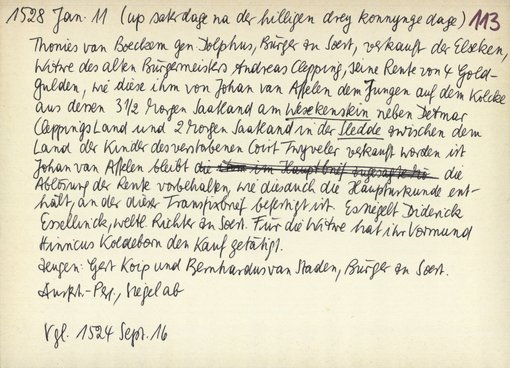 1528 Jan. 11 (up saterdage na der hilligen drey konnynge dage) 113
Thonies van Boeckem gen. Dolphus, Bürger zu Soest, verkauft der Elseken,
Witwe des alten Bürgermeisters Andreas Clepping, seine Rente von 4 Gold-
gulden, wie diese ihm von Johan van Asselen dem Jungen auf dem Kolke
aus dessen 3 1/2 Morgen Saatland am Wesekenskin neben Detmar
Cleppings Land und 2 Morgen Saatland in der Sledde zwischen dem
Land der Kinder des verstorbenen Coirt Tryveler verkauft worden ist
Johan van Asselen bleibt die
Ablösung der Rente vorbehalten, wie dies auch die Haupturkunde ent-
hält, an der dieser Transfixbrief befestigt ist. Es siegelt Diderick
Essellrick, weltl. Richter zu Soest. Für die Witwe hat ihr Vormund
Hinricus Koldeborn den Kauf getätigt.
Zeugen: Gert Koip und Bernhardus van Staden, Bürger zu Soest.
Ausfert.-Per., Siegel ab
Vgl. 1524 Sept. 16